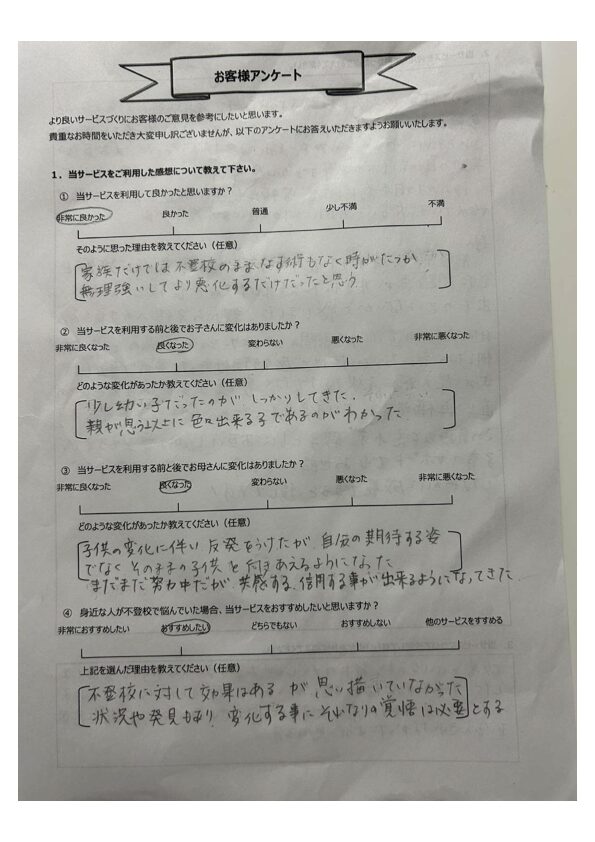 お客様アンケート
より良いサービスづくりにお客様のご意見を参考にしたいと思います。
貴重なお時間をいただき大変申し訳ございませんが、以下のアンケートにお答えいただきますようお願いいたします。
1. 当サービスをご利用した感想について教えて下さい。
① 当サービスを利用して良かったと思いますか?
非常に良かった 良かった 普通 少し不満 不満
そのように思った理由を教えてください(任意)
家族だけでは不登校のままなす術もなく時がたつか
無理強いしてより悪化するだけだったと思う
② 当サービスを利用する前と後でお子さんに変化はありましたか?
非常に良くなった 良くなった 変わらない 悪くなった 非常に悪くなった
どのような変化があったか教えてください(任意)
少し幼い子だったのが しっかりしてきた.
親が思う以上に色々出来る子であるのがわかった
③ 当サービスを利用する前と後でお母さんに変化はありましたか?
非常に良くなった 良くなった 変わらない 悪くなった 非常に悪くなった
どのような変化があったか教えてください(任意)
子供の変化に伴い 反発をうけたが、自分の期待する姿
でなく そのままの子供 と向きあえるようになった
まだまだ努力中だが、共感する、信用する事が出来るようになってきた.
④ 身近な人が不登校で悩んでいた場合、当サービスをおすすめしたいと思いますか?
非常におすすめしたい おすすめしたい どちらでもない おすすめしない 他のサービスをすすめる
上記を選んだ理由を教えてください(任意)
不登校に対して効果はある が 思い描いていなかった
状況や発見もあり、変化する事に それなりの覚悟は必要とする